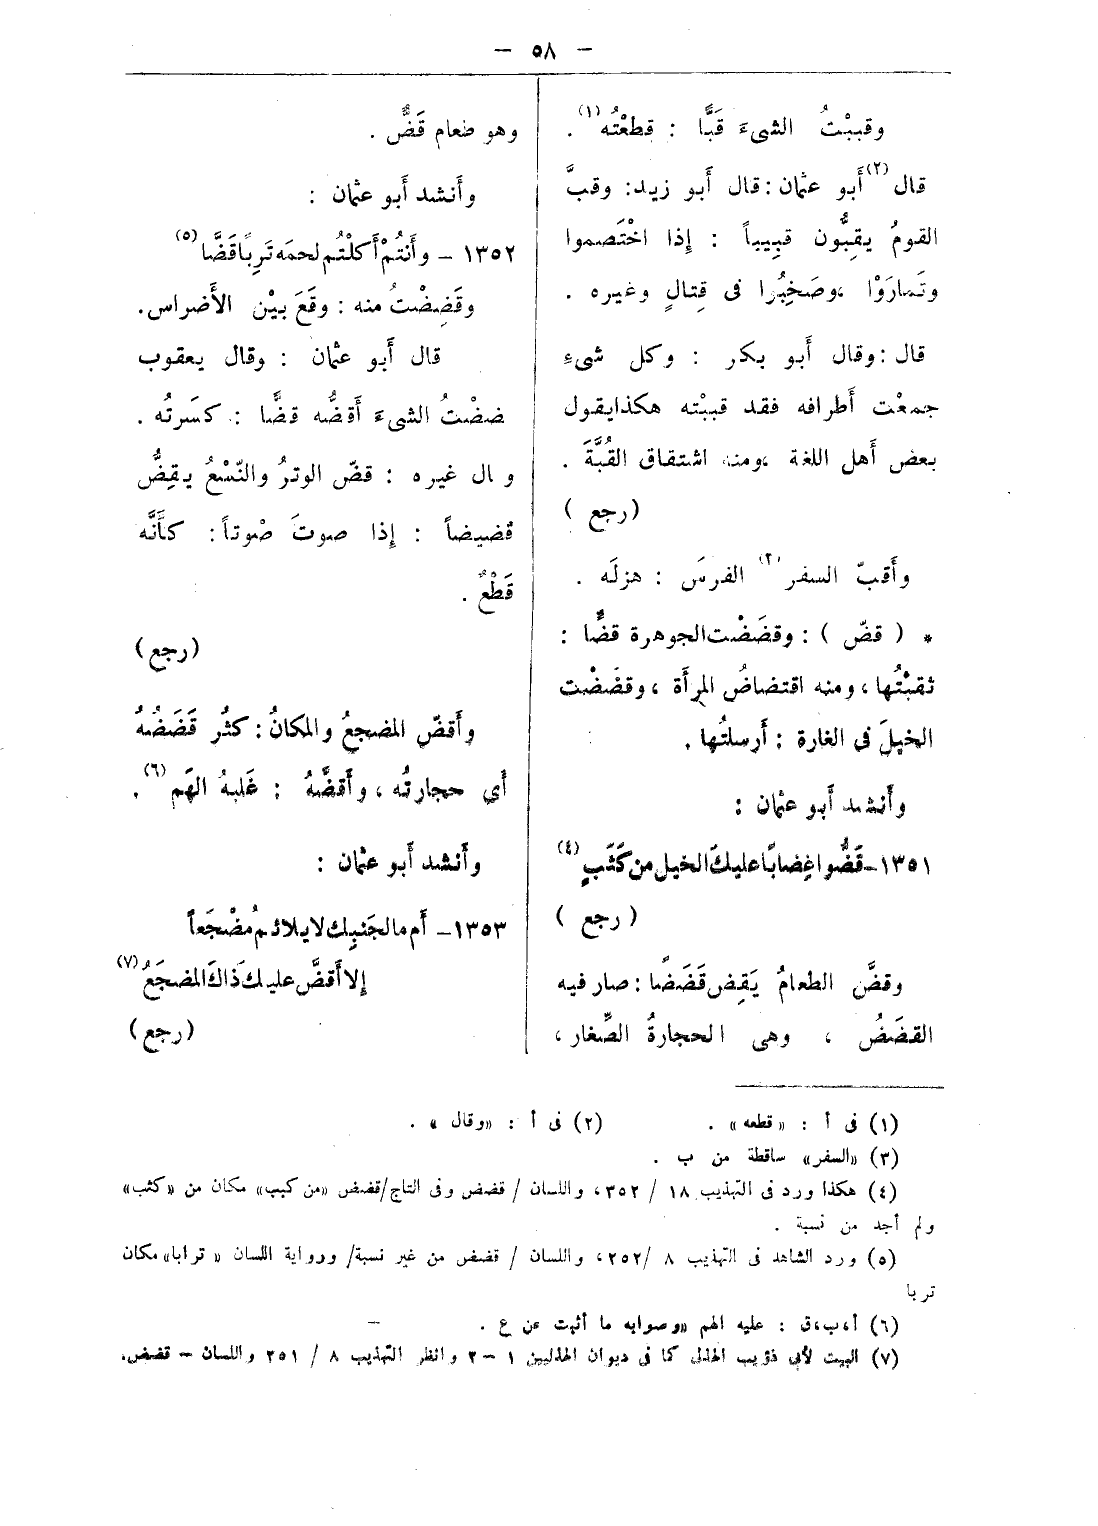 — ٥٨ —
وقببْتُ الشىءَ قَبًّا : قطعْتُه (١) .
قال (٢) أَبو عثمان : قال أَبو زيد : وقبَّ
القومُ يقِبُّون قبيباً : إِذا اخْتَصموا
وتَمارَوْا ، وصَخِبُوا فى قِتالٍ وغيره .
قال : وقال أَبو بكر : وكل شىءٍ
جمعْت أَطرافه فقد قببْته هكذا يقول
بعض أَهل اللغة ، ومنه اشتقاق القُبَّةَ .
( رجع )
وأَقبّ السفر (٣) الفرسَ : هزلَه .
* ( قضّ ) : وقضَضْت الجوهرة قضًّا :
ثقبْتُها ، ومنه اقتضاضُ المرأَة ، وقضَضْت
الخيلَ فى الغارة : أَرسلتُها .
وأَنشد أَبو عثمان :
١٣٥١ – قَضُّوا غِضابًا عليكَ الخيل من كَثَبٍ (٤)
( رجع )
وقضَّ الطعامُ يَقِض قَضَضًا : صار فيه
القضَضُ ، وهى الحجارةُ الصِّغار ،
وهو طعام قَضٌّ .
وأَنشد أَبو عثمان :
١٣٥٢ – وأَنتُمْ أَكلْتُم لحمَه تَرِبًا قَضَّا (٥)
وقَضِضْتُ منه : وقَعَ بيْن الأَضراس .
قال أَبو عثمان : وقال يعقوب
ضضْتُ الشىءَ أَقضُّه قضًّا : كسَرتُه .
و ال غيره : قضّ الوترُ والنّسْعُ يقِضُّ
قضيضاً : إِذا صوتَ صْوتاً : كأَنَّه
قَطْعٌ .
( رجع )
وأَقضّ المضجعُ والمكانُ : كثُر قَضَضُهُ
أَي حجارتُه ، وأَقضَّهُ : غَلبهُ الهَم (٦) .
وأَنشد أَبو عثمان :
١٣٥٣ – أَم ما لجَنبِك لا يلائمُ مضْجَعاً
إِلا أَقضَّ عليك ذَاكَ المضجَعُ (٧)
( رجع )
(١) فى أ : « قطعه » . (٢) فى أ : « وقال » .
(٣) «السفر» ساقطة من ب .
(٤) هكذا ورد فى التهذيب ١٨ / ٣٥٢ ، واللسان / قضض وفى التاج/قضض «من كبب» مكان من «كثب»
ولم أجد من نسبة .
(٥) ورد الشاهد فى التهذيب ٨ /٢٥٢ ، واللسان / قضض من غير نسبة/ ورواية اللسان « ترابا» مكان
تربا
(٦) أ،ب،ق : عليه الهم «وصوابه ما أثبت عن ع .
(٧) البيت لأبى ذؤيب الهذلى كما فى ديوان الهذليين ١ – ٢ وانظر التهذيب ٨ / ٢٥١ واللسان – قضض.